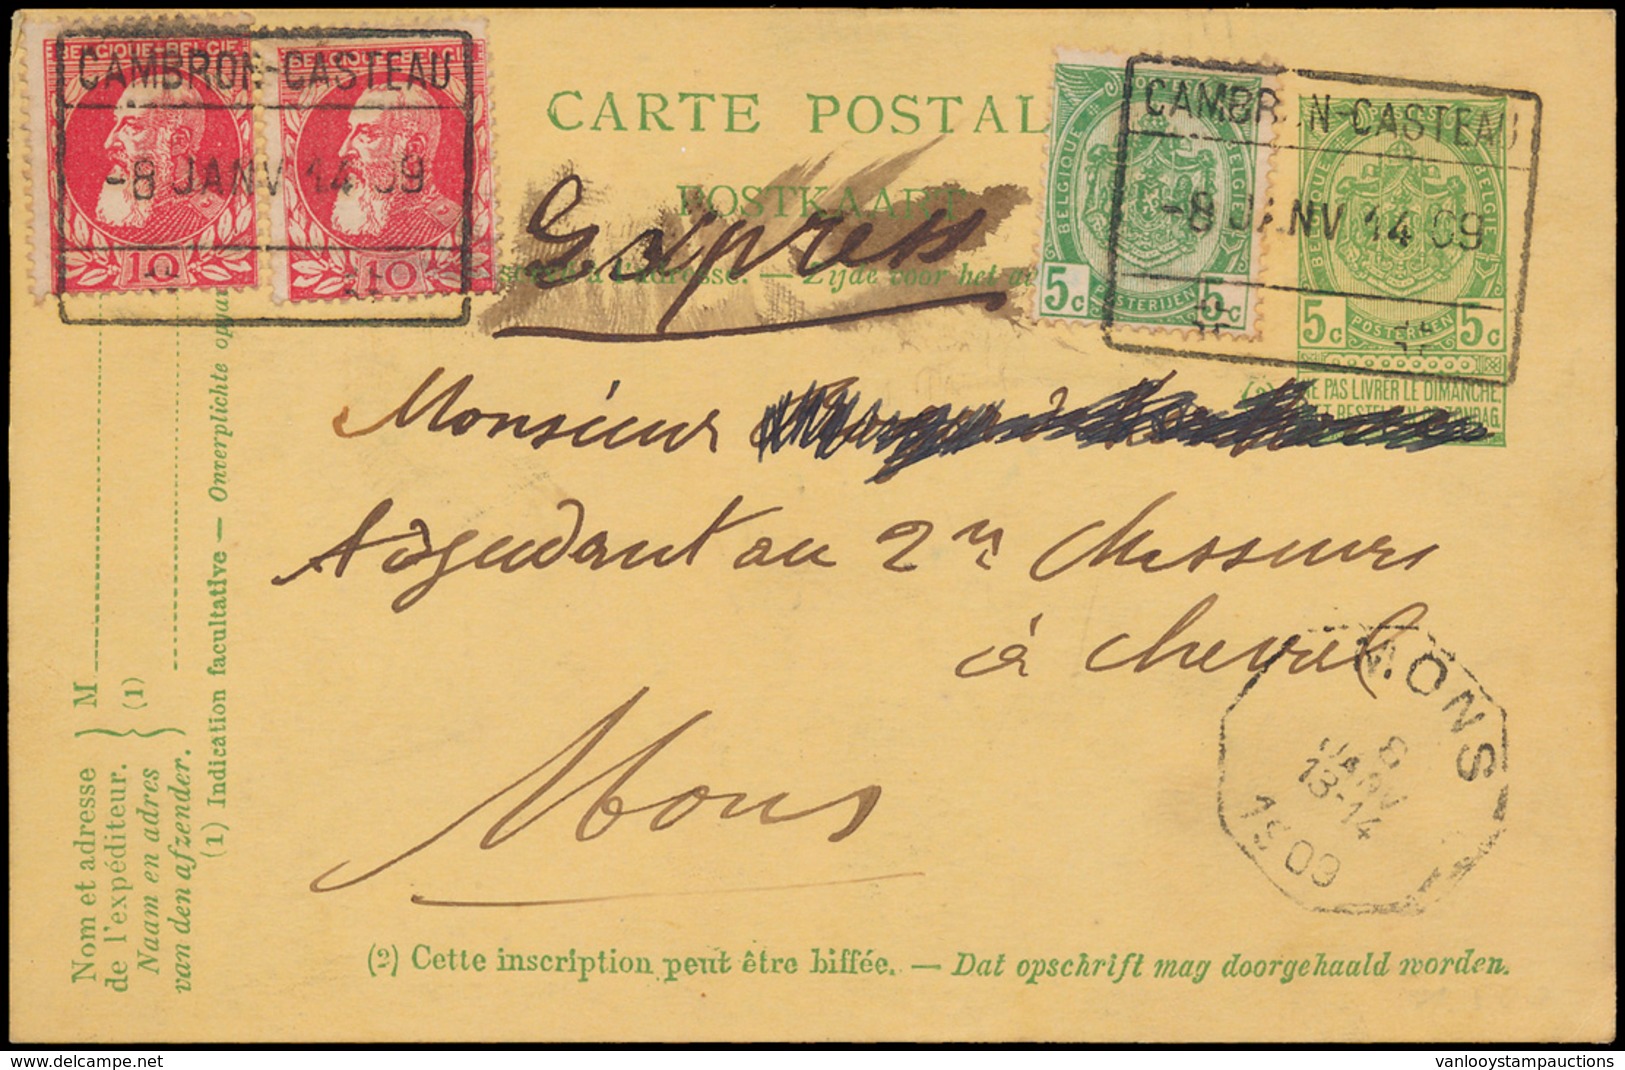 BELGIQUE-BELGIE BELGIQUE-BELGIE
CAMBRON-CASTEAU
-8 JANV 14 09
10 10
CARTE POSTAL
POSTKAART
Zijde voor het
Express
BELGIQUE BELGIE
5c POSTERIJEN 5c
CAMBRON-CASTEAU
-8 JANV 14 09
BELGIQUE BELGIE
5c POSTERIJEN 5c
NE PAS LIVRER LE DIMANCHE.
Monsieur
Adjudant au 2n Chasseurs
à cheval
Mons
MONS
8
JANV
13-14
1909
M
(1)
Nom et adresse
de l'expéditeur.
Naam en adres
van den afzender.
(1) Indication facultative — Onverplichte
(2) Cette inscription peut être biffée. — Dat opschrift mag doorgehaald worden.
vanlooystampauctions